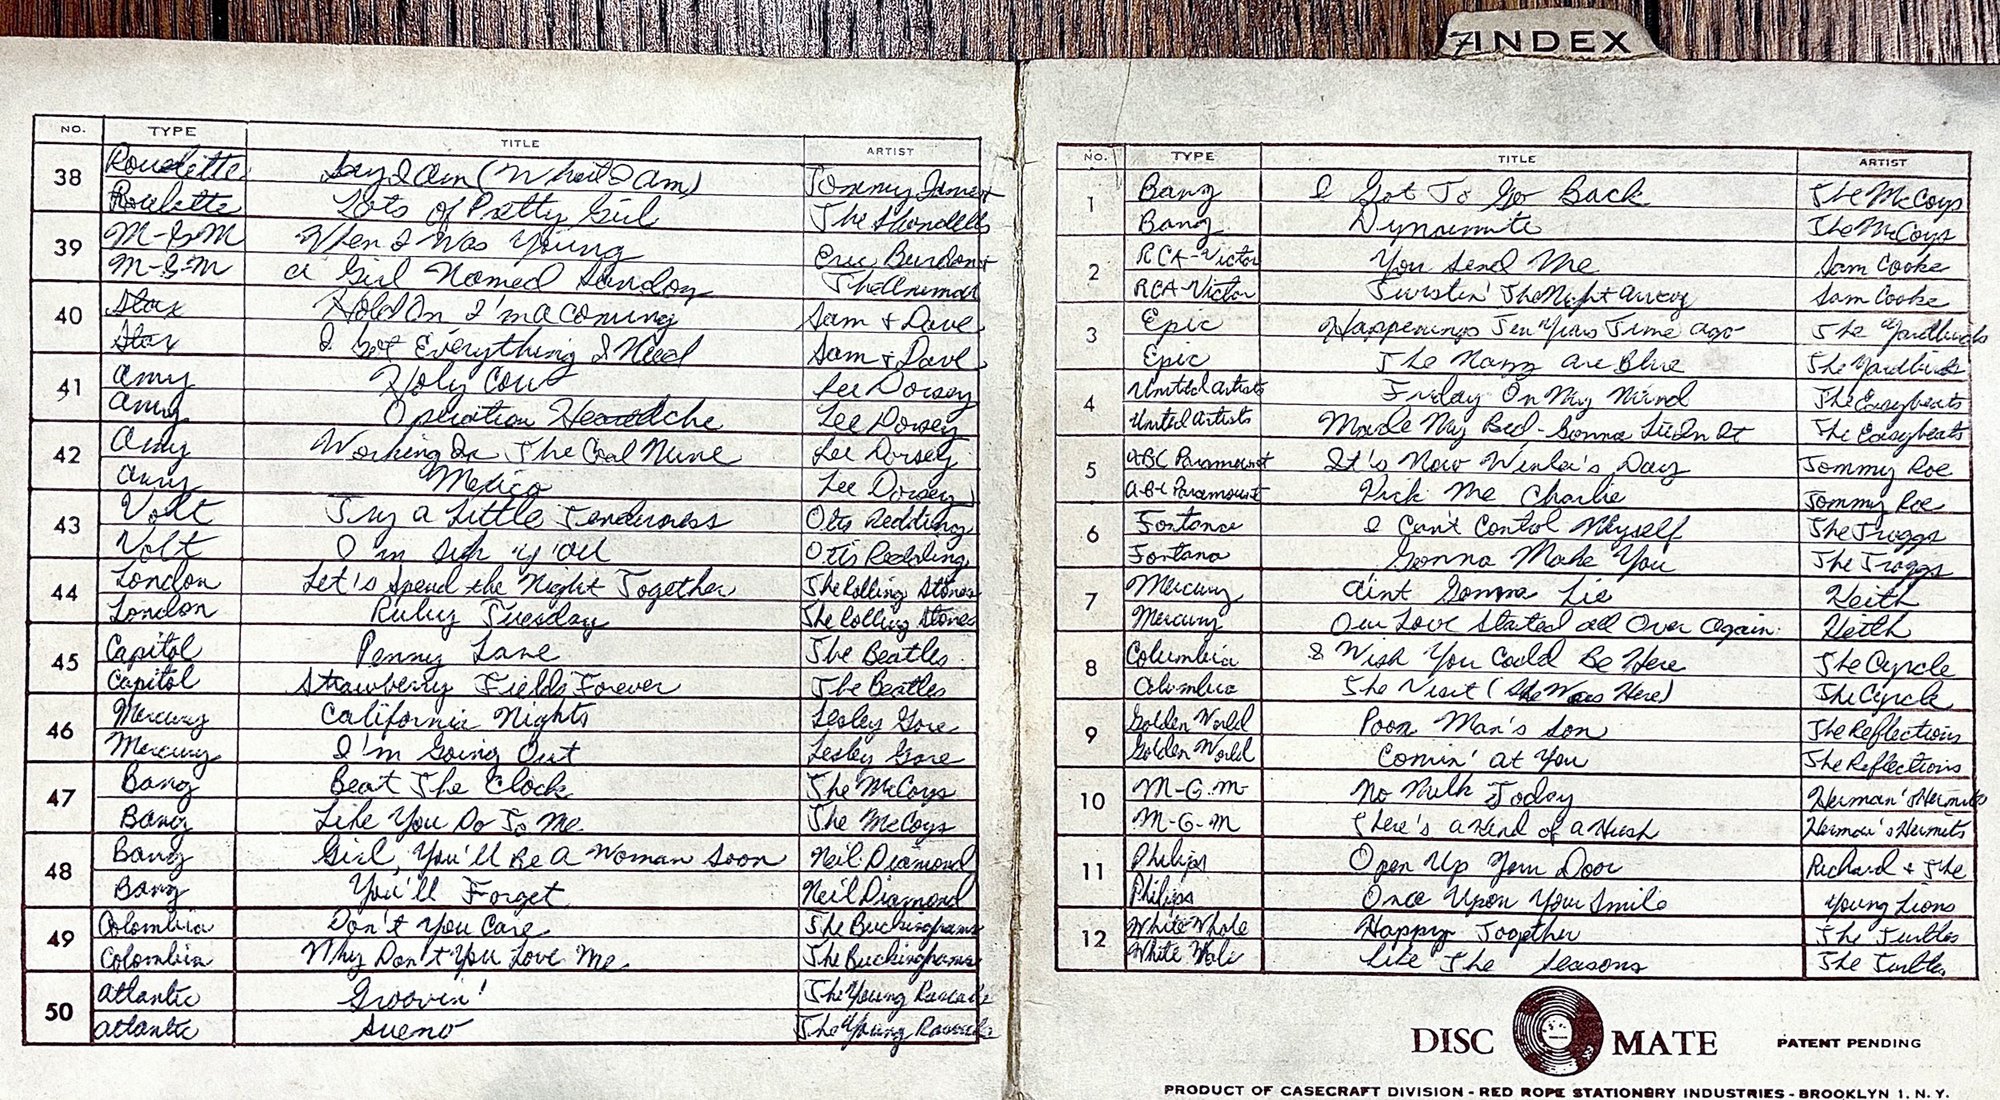 NO. TYPE TITLE ARTIST
38 Roulette Say I Am (What I Am) Tommy James +
Roulette Lots Of Pretty Girl The Shondells
39 M-G-M When I Was Young Eric Burdon +
M-G-M A Girl Named Sandoz The Animals
40 Stax Hold On I'm A Coming Sam + Dave
Stax I Got Everything I Need Sam + Dave
41 Amy Holy Cow Lee Dorsey
Amy Operation Heartache Lee Dorsey
42 Amy Working In The Coal Mine Lee Dorsey
Amy Mexico Lee Dorsey
43 Volt Try a Little Tenderness Otis Redding
Volt I'm Sick Y'all Otis Redding
44 London Let's Spend the Night Together The Rolling Stones
London Ruby Tuesday The Rolling Stones
45 Capitol Penny Lane The Beatles
Capitol Strawberry Fields Forever The Beatles
46 Mercury California Nights Lesley Gore
Mercury I'm Going Out Lesley Gore
47 Bang Beat The Clock The McCoys
Bang Like You Do To Me The McCoys
48 Bang Girl, You'll Be A Woman Soon Neil Diamond
Bang You'll Forget Neil Diamond
49 Colombia Don't You Care The Buckinghams
Colombia Why Don't You Love Me The Buckinghams
50 Atlantic Groovin' The Young Rascals
Atlantic Sueno The Young Rascals
INDEX
NO. TYPE TITLE ARTIST
1 Bang I Got To Go Back The McCoys
Bang Dynamite The McCoys
2 RCA-Victor You Send Me Sam Cooke
RCA-Victor Twistin' The Night Away Sam Cooke
3 Epic Happenings Ten Years Time Ago The Yardbirds
Epic The Nazz Are Blue The Yardbirds
4 United Artists Friday On My Mind The Easybeats
United Artists Made My Bed - Gonna Lie In It The Easybeats
5 ABC Paramount It's Now Winter's Day Tommy Roe
ABC Paramount Kick Me Charlie Tommy Roe
6 Fontana I Can't Control Myself The Troggs
Fontana Gonna Make You The Troggs
7 Mercury Ain't Gonna Lie Keith
Mercury Our Love Started All Over Again Keith
8 Columbia I Wish You Could Be Here The Cyrcle
Columbia The Visit (She Was Here) The Cyrcle
9 Golden World Poor Man's Son The Reflections
Golden World Comin' At You The Reflections
10 M-G-M No Milk Today Herman's Hermits
M-G-M There's a Kind of a Hush Herman's Hermits
11 Philips Open Up Your Door Richard + The
Philips Once Upon Your Smile Young Lions
12 White Whale Happy Together The Turtles
White Whale Like The Seasons The Turtles
DISC MATE PATENT PENDING
PRODUCT OF CASECRAFT DIVISION - RED ROPE STATIONERY INDUSTRIES - BROOKLYN 1. N. Y.